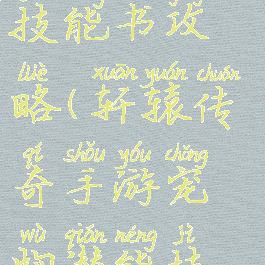 技能书攻
lüè xuān yuán chuán
略(轩辕传
qí shǒu yóu chǒng
奇手游宠
wù qián néng jì
物潜能技